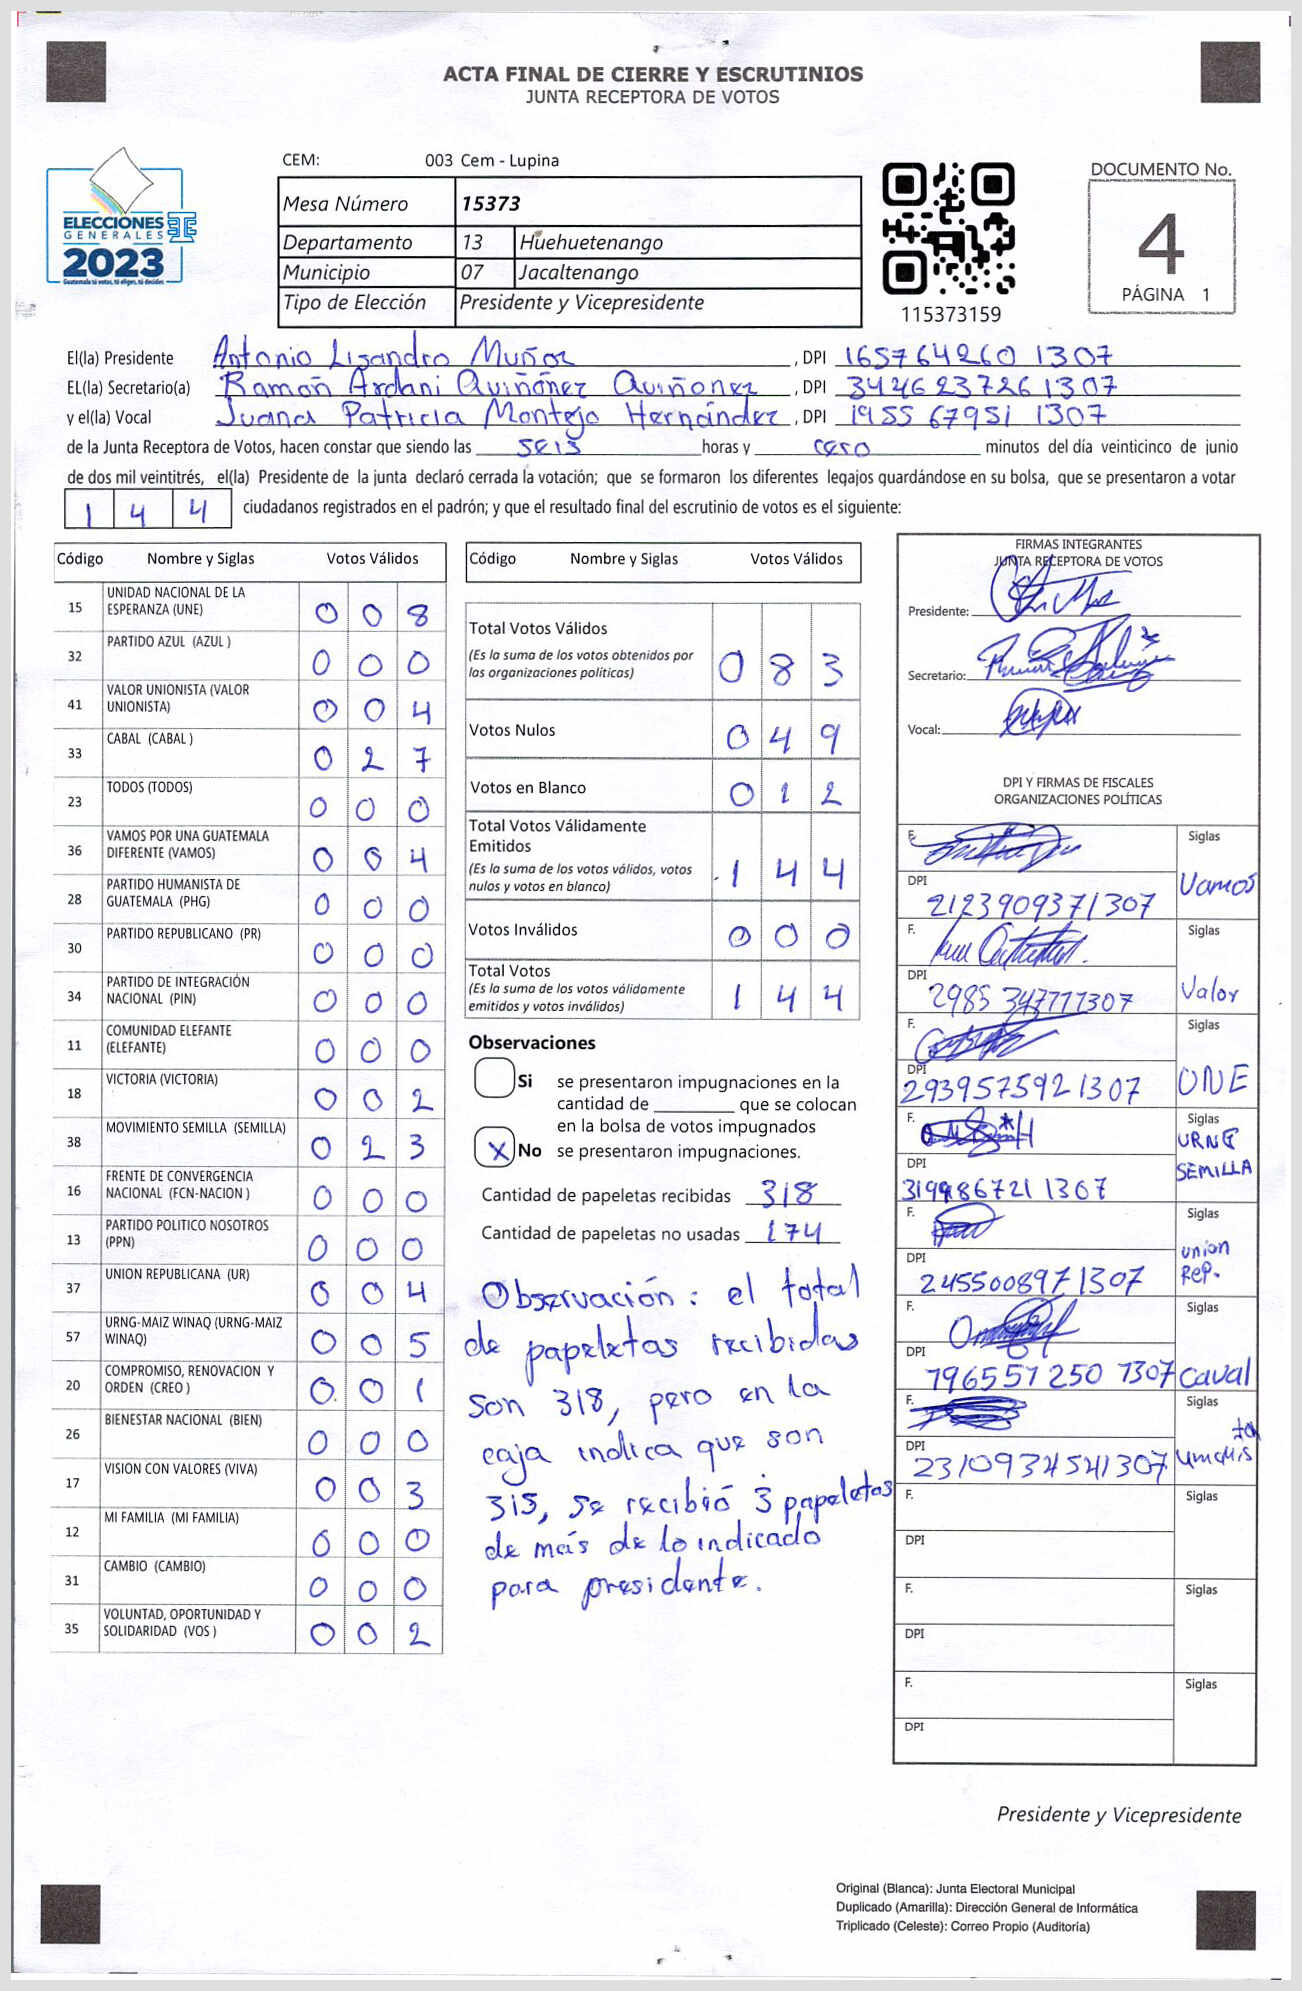 ACTA FINAL DE CIERRE Y ESCRUTINIOS
JUNTA RECEPTORA DE VOTOS
ELECCIONES
GENERALES
2023
Guatemala tú votas, tú eliges, tú decides
CEM: 003 Cem - Lupina
Mesa Número 15373
Departamento 13 Huehuetenango
Municipio 07 Jacaltenango
Tipo de Elección Presidente y Vicepresidente
115373159
DOCUMENTO No.
4
PÁGINA 1
El(la) Presidente Antonio Lisandro Muñoz, DPI 165764260 1307
EL(la) Secretario(a) Ramón Ardani Quiñónez Quiñonez, DPI 344623726 1307
y el(la) Vocal Juana Patricia Montejo Hernández, DPI 1955 67951 1307
de la Junta Receptora de Votos, hacen constar que siendo las seis horas y cero minutos del día veinticinco de junio
de dos mil veintitrés, el(la) Presidente de la junta declaró cerrada la votación; que se formaron los diferentes legajos guardándose en su bolsa, que se presentaron a votar
1 4 4 ciudadanos registrados en el padrón; y que el resultado final del escrutinio de votos es el siguiente:
Código Nombre y Siglas Votos Válidos
15 UNIDAD NACIONAL DE LA ESPERANZA (UNE) 0 0 8
32 PARTIDO AZUL (AZUL ) 0 0 0
41 VALOR UNIONISTA (VALOR UNIONISTA) 0 0 4
33 CABAL (CABAL ) 0 2 7
23 TODOS (TODOS) 0 0 0
36 VAMOS POR UNA GUATEMALA DIFERENTE (VAMOS) 0 0 4
28 PARTIDO HUMANISTA DE GUATEMALA (PHG) 0 0 0
30 PARTIDO REPUBLICANO (PR) 0 0 0
34 PARTIDO DE INTEGRACIÓN NACIONAL (PIN) 0 0 0
11 COMUNIDAD ELEFANTE (ELEFANTE) 0 0 0
18 VICTORIA (VICTORIA) 0 0 2
38 MOVIMIENTO SEMILLA (SEMILLA) 0 2 3
16 FRENTE DE CONVERGENCIA NACIONAL (FCN-NACION ) 0 0 0
13 PARTIDO POLITICO NOSOTROS (PPN) 0 0 0
37 UNION REPUBLICANA (UR) 0 0 4
57 URNG-MAIZ WINAQ (URNG-MAIZ WINAQ) 0 0 5
20 COMPROMISO, RENOVACION Y ORDEN (CREO ) 0 0 1
26 BIENESTAR NACIONAL (BIEN) 0 0 0
17 VISION CON VALORES (VIVA) 0 0 3
12 MI FAMILIA (MI FAMILIA) 0 0 0
31 CAMBIO (CAMBIO) 0 0 0
35 VOLUNTAD, OPORTUNIDAD Y SOLIDARIDAD (VOS ) 0 0 2
Código Nombre y Siglas Votos Válidos
Total Votos Válidos
(Es la suma de los votos obtenidos por
las organizaciones políticas) 0 8 3
Votos Nulos 0 4 9
Votos en Blanco 0 1 2
Total Votos Válidamente
Emitidos
(Es la suma de los votos válidos, votos
nulos y votos en blanco) 1 4 4
Votos Inválidos 0 0 0
Total Votos
(Es la suma de los votos válidamente
emitidos y votos inválidos) 1 4 4
Observaciones
Si se presentaron impugnaciones en la
cantidad de ________ que se colocan
en la bolsa de votos impugnados
X No se presentaron impugnaciones.
Cantidad de papeletas recibidas 318
Cantidad de papeletas no usadas 174
Observación: el total
de papeletas recibidas
son 318, pero en la
caja indica que son
315, se recibió 3 papeletas
de más de lo indicado
para presidente.
FIRMAS INTEGRANTES
JUNTA RECEPTORA DE VOTOS
Presidente:
Secretario:
Vocal:
DPI Y FIRMAS DE FISCALES
ORGANIZACIONES POLÍTICAS
F. Siglas
Vamos
DPI
2123909371307
F. Siglas
Valor
DPI
2985 347771307
F. Siglas
UNE
DPI
2939575921307
F. Siglas
URNG
SEMILLA
DPI
319986721 1307
F. Siglas
union
Rep.
DPI
2455008971307
F. Siglas
DPI
796551 250 1307 Caval
F. Siglas
DPI
2310934541307
F. Siglas
DPI
F. Siglas
DPI
F. Siglas
DPI
Presidente y Vicepresidente
Original (Blanca): Junta Electoral Municipal
Duplicado (Amarilla): Dirección General de Informática
Triplicado (Celeste): Correo Propio (Auditoría)